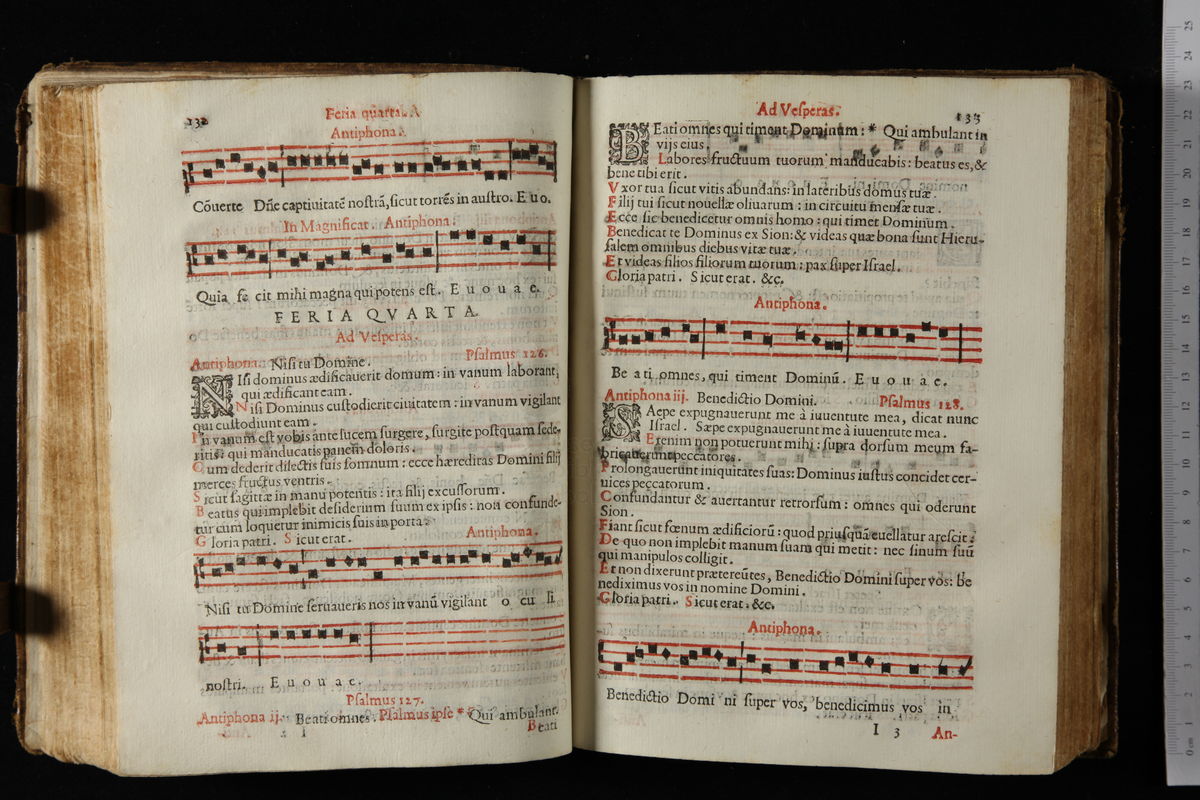 132
Feria quarta.
Antiphona.
Cõuerte Dñe captiuitatẽ nostrã, sicut torrẽs in austro. E u o.
In Magnificat. Antiphona.
Quia fe cit mihi magna qui potens est. E u o u a e.
FERIA QVARTA.
Ad Vesperas.
Antiphona. Nisi tu Domine. Psalmus 126.
NIsi dominus ædificauerit domum: in vanum laborant,
qui ædificant eam.
Nisi Dominus custodierit ciuitatem: in vanum vigilant
qui custodiunt eam.
In vanum est vobis ante lucem surgere, surgite postquam sede-
ritis: qui manducatis panem doloris.
Cum dederit dilectis suis somnum: ecce hæreditas Domini filij
merces fructus ventris.
Sicut sagittæ in manu potentis: ita filij excussorum.
Beatus qui implebit desiderium suum ex ipsis: non confunde-
tur cum loquetur inimicis suis in porta.
Gloria patri. Sicut erat. Antiphona.
Nisi tu Domine seruaueris nos in vanũ vigilant o cu li
nostri. E u o u a e.
Psalmus 127.
Antiphona ij. Beati omnes. Psalmus ipse * Qui ambulant.
Beati
Ad Vesperas. 133
BEati omnes qui timent Dominum: * Qui ambulant in
vijs eius.
Labores fructuum tuorum manducabis: beatus es, &
bene tibi erit.
Vxor tua sicut vitis abundans: in lateribus domus tuæ.
Filij tui sicut nouellæ oliuarum: in circuitu mensæ tuæ.
Ecce sic benedicetur omnis homo: qui timet Dominum.
Benedicat te Dominus ex Sion: & videas quæ bona sunt Hieru-
salem omnibus diebus vitæ tuæ.
Et videas filios filiorum tuorum: pax super Israel.
Gloria patri. Sicut erat. &c.
Antiphona.
Be a ti omnes, qui timent Dominũ. E u o u a e.
Antiphona iij. Benedictio Domini. Psalmus 128.
SAepe expugnauerunt me à iuuentute mea, dicat nunc
Israel. Sæpe expugnauerunt me à iuuentute mea.
Etenim non potuerunt mihi: supra dorsum meum fa-
bricauerunt peccatores.
Prolongauerunt iniquitates suas: Dominus iustus concidet cer-
uices peccatorum.
Confundantur & auertantur retrorsum: omnes qui oderunt
Sion.
Fiant sicut fœnum ædificiorũ: quod priusquã euellatur arescit:
De quo non implebit manum suam qui metit: nec sinum suũ
qui manipulos colligit.
Et non dixerunt prætereũtes, Benedictio Domini super vos: be
nediximus vos in nomine Domini.
Gloria patri. Sicut erat. &c.
Antiphona.
Benedictio Domi ni super vos, benedicimus vos in
I 3 An-